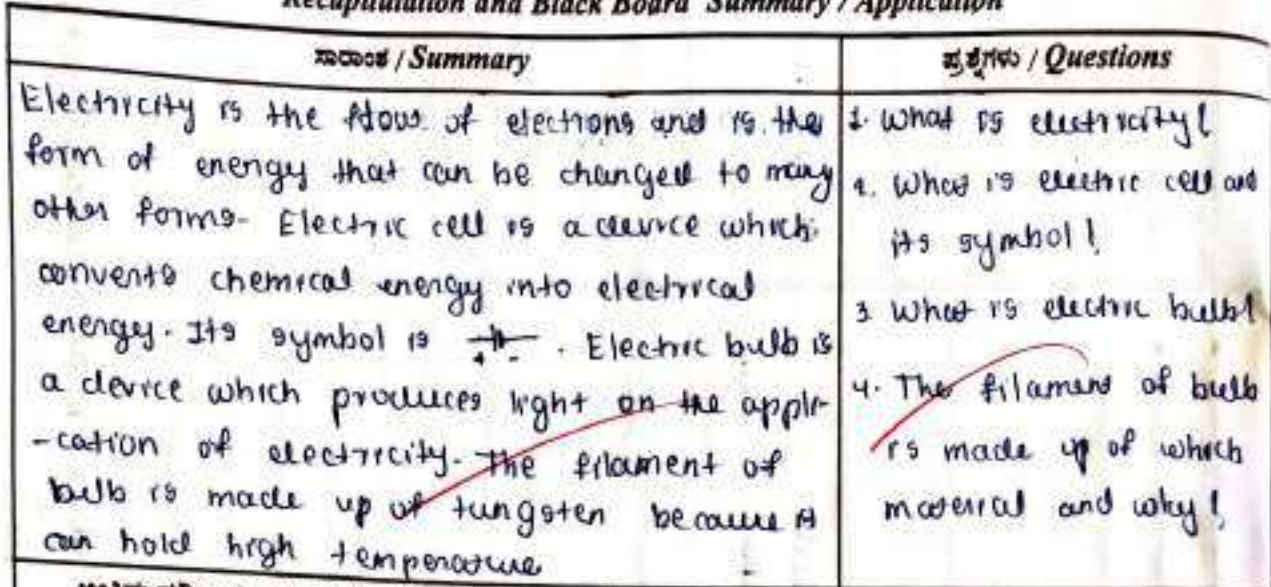 Recapitulation and Black Board Summary / Application
ಸಾರಾಂಶ / Summary
Electricity is the flow of electrons and is the
form of energy that can be changed to many
other forms- Electric cell is a device which
converts chemical energy into electrical
energy. Its symbol is . Electric bulb is
a device which produces light on the appli-
-cation of electricity. The filament of
bulb is made up of tungsten because it
can hold high temperature
ಪ್ರಶ್ನೆಗಳು / Questions
1. What is electricity?
2. What is electric cell and
its symbol?
3 What is electric bulb?
4. The filament of bulb
is made up of which
material and why?